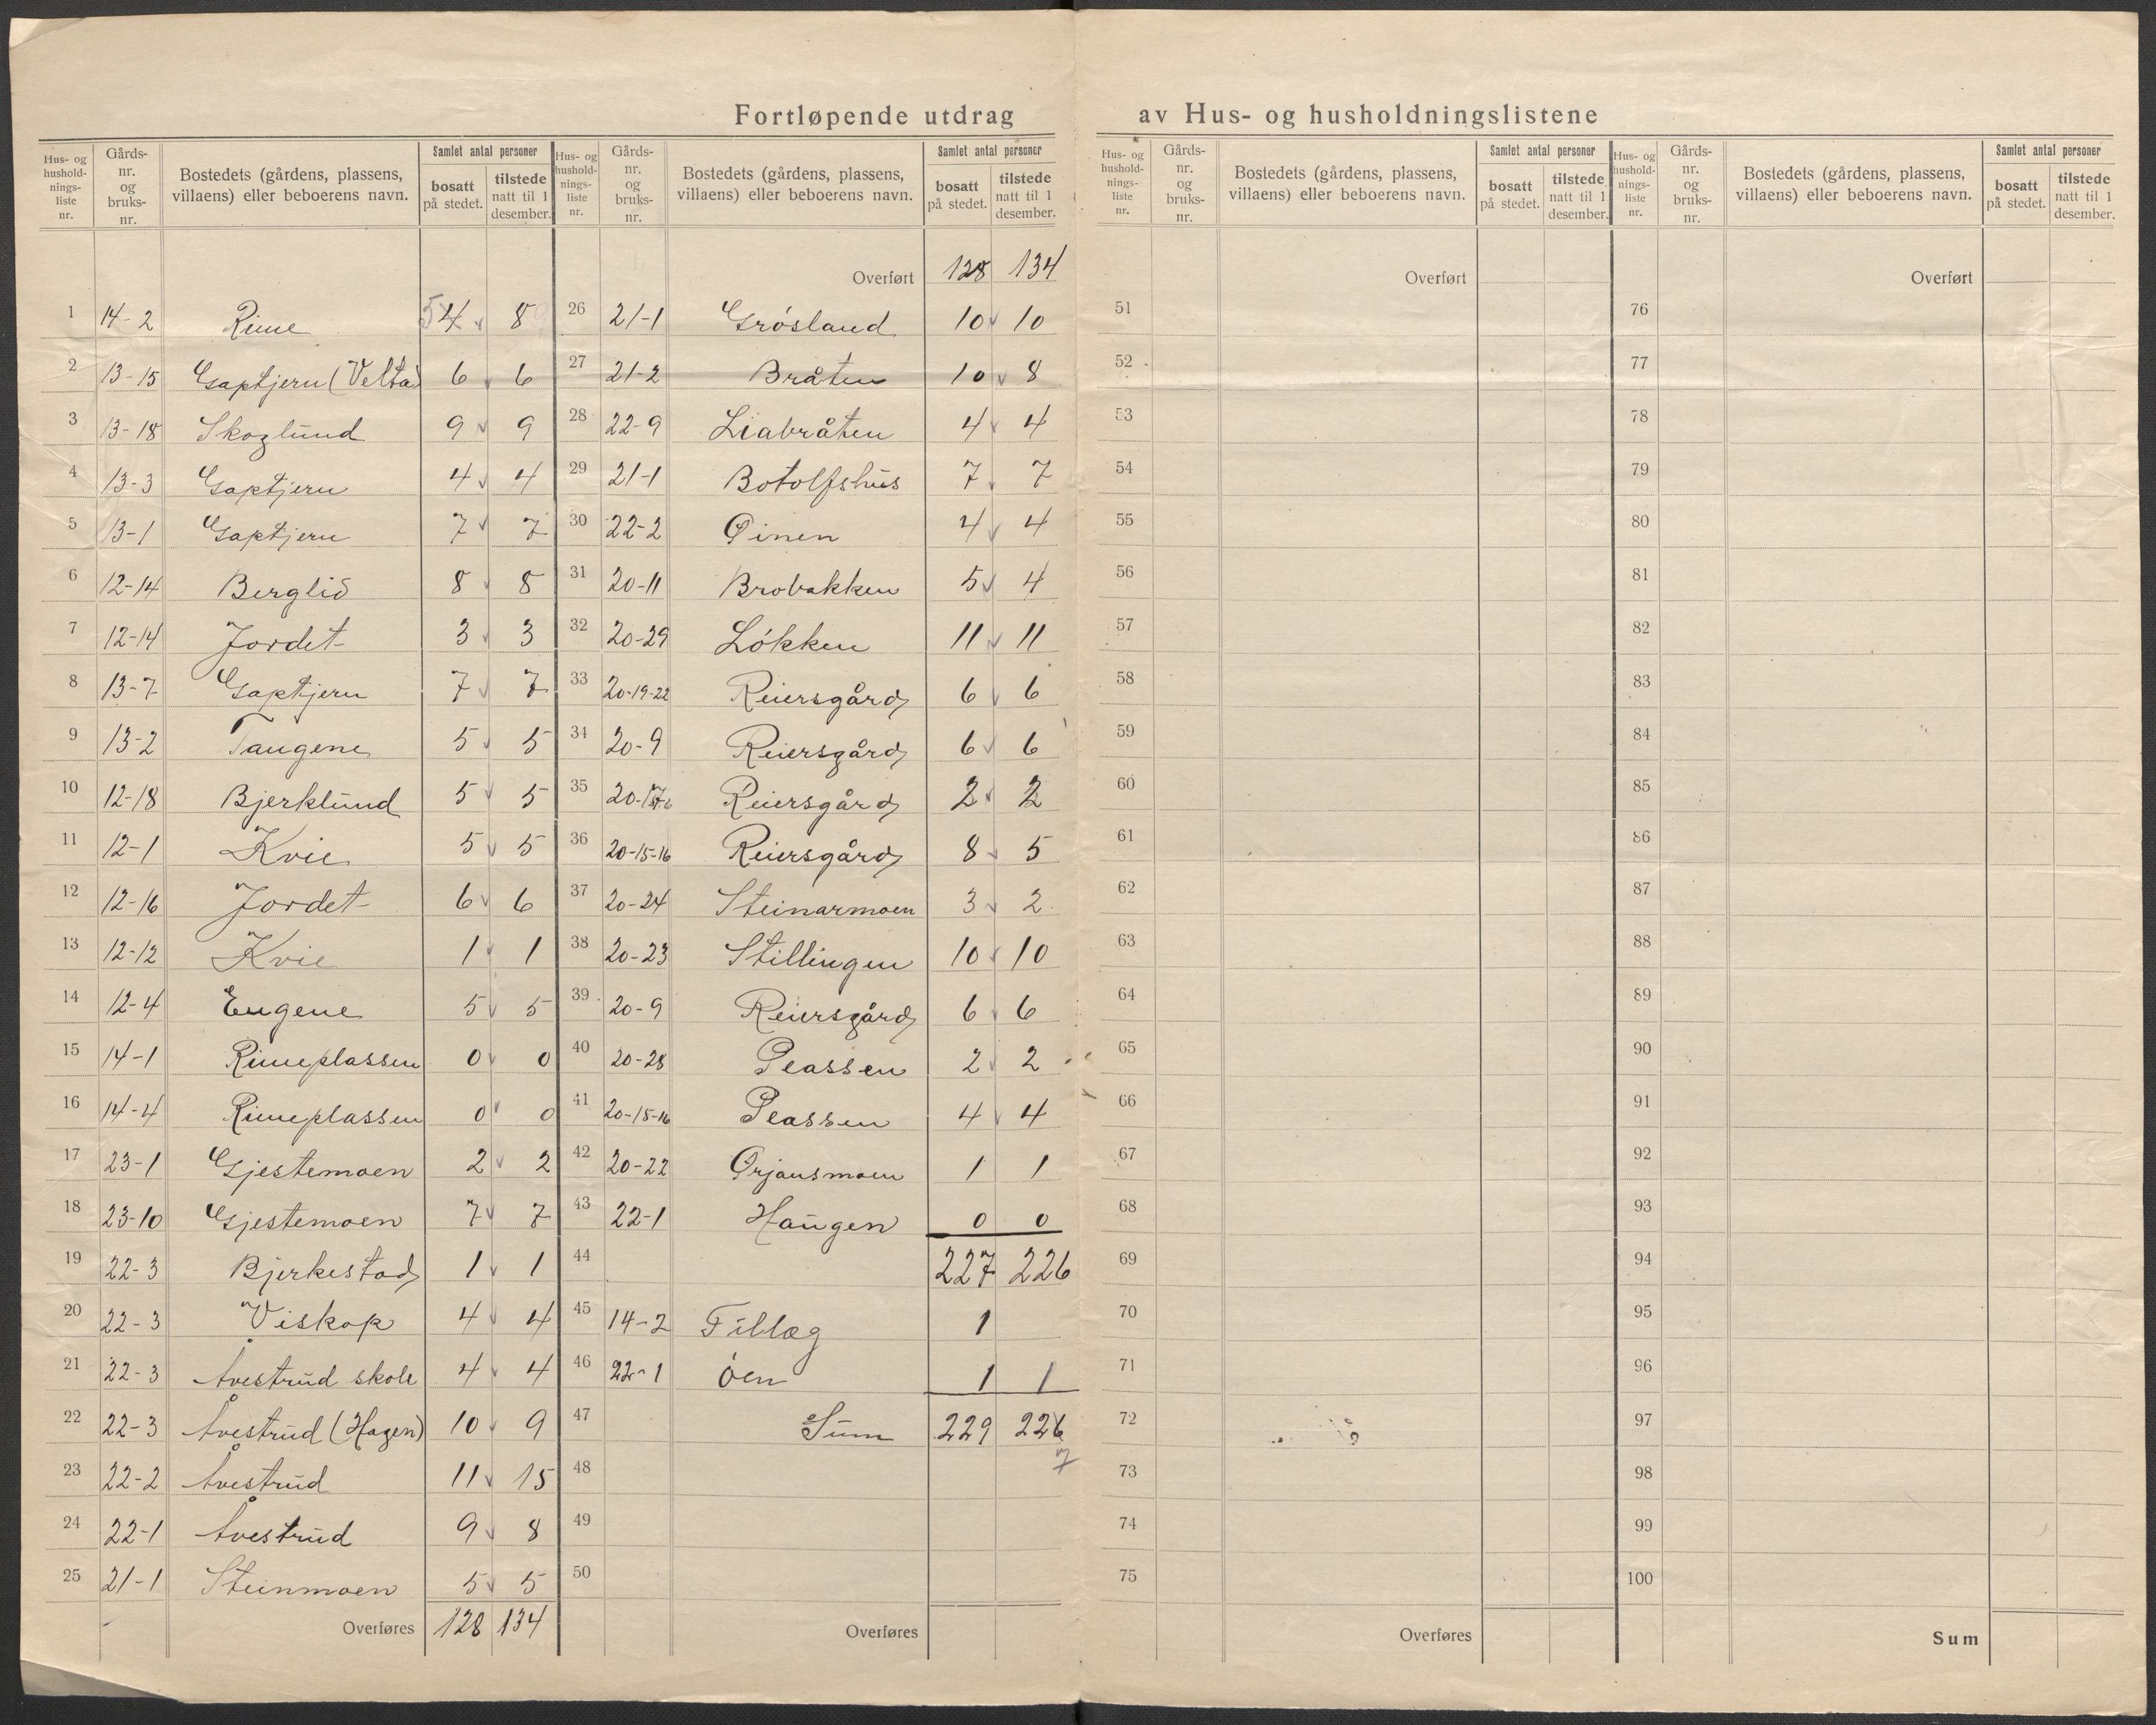 Fortløpende utdrag av Hus- og husholdningslistene
Hus- og hushold-nings-liste nr. Gårds-nr. og bruks-nr. Bostedets (gårdens, plassens, villaens) eller beboerens navn. Samlet antal personer bosatt på stedet. tilstede natt til 1 desember.
1 14-2 Rime 5 4 8
2 13-15 Gaptjern (Velta) 6 6
3 13-18 Skoglund 9 9
4 13-3 Gaptjern 4 4
5 13-1 Gaptjern 7 7
6 12-14 Berglid 8 8
7 12-14 Jordet 3 3
8 13-7 Gaptjern 7 7
9 13-2 Tangene 5 5
10 12-18 Bjerklund 5 5
11 12-1 Kvie 5 5
12 12-16 Jordet 6 6
13 12-12 Kvie 1 1
14 12-4 Engene 5 5
15 14-1 Rimeplassen 0 0
16 14-4 Rimeplassen 0 0
17 23-1 Gjestemoen 2 2
18 23-10 Gjestemoen 7 7
19 22-3 Bjerkestad 1 1
20 22-3 Viskop 4 4
21 22-3 Åvestrud skole 4 4
22 22-3 Åvestrud (Hagen) 10 9
23 22-2 Åvestrud 11 15
24 22-1 Åvestrud 9 8
25 21-1 Steinmoen 5 5
Overføres 128 134
Hus- og hushold-nings-liste nr. Gårds-nr. og bruks-nr. Bostedets (gårdens, plassens, villaens) eller beboerens navn. Samlet antal personer bosatt på stedet. tilstede natt til 1 desember.
Overført 128 134
26 21-1 Grósland 10 10
27 21-2 Bråten 10 8
28 22-9 Liabråten 4 4
29 21-1 Botolfshus 7 7
30 22-2 Øinen 4 4
31 20-11 Brobakken 5 4
32 20-29 Lókken 11 11
33 20-19-22 Reiersgård 6 6
34 20-9 Reiersgård 6 6
35 Reiersgård 2 2
36 20-15-16 Reiersgård 8 5
37 20-24 Steinarmoen 3 2
38 20-23 Stillingen 10 10
39 20-9 Reiersgård 6 6
40 20-28 Plassen 2 2
41 20-15-16 Plassen 4 4
42 20-22 Ørjansmoen 1 1
43 22-1 Haugen 0 0
44 227 226
45 14-2 Tillæg 1
46 22-1 óen 1 1
47 Sum 229 226
7
48
49
50
Overføres
Hus- og hushold-nings-liste nr. Gårds-nr. og bruks-nr. Bostedets (gårdens, plassens, villaens) eller beboerens navn. Samlet antal personer bosatt på stedet. tilstede natt til 1 desember.
Overført
51
52
53
54
55
56
57
58
59
60
61
62
63
64
65
66
67
68
69
70
71
72
73
74
75
Overføres
Hus- og hushold-nings-liste nr. Gårds-nr. og bruks-nr. Bostedets (gårdens, plassens, villaens) eller beboerens navn. Samlet antal personer bosatt på stedet. tilstede natt til 1 desember.
Overført
76
77
78
79
80
81
82
83
84
85
86
87
88
89
90
91
92
93
94
95
96
97
98
99
100
Sum